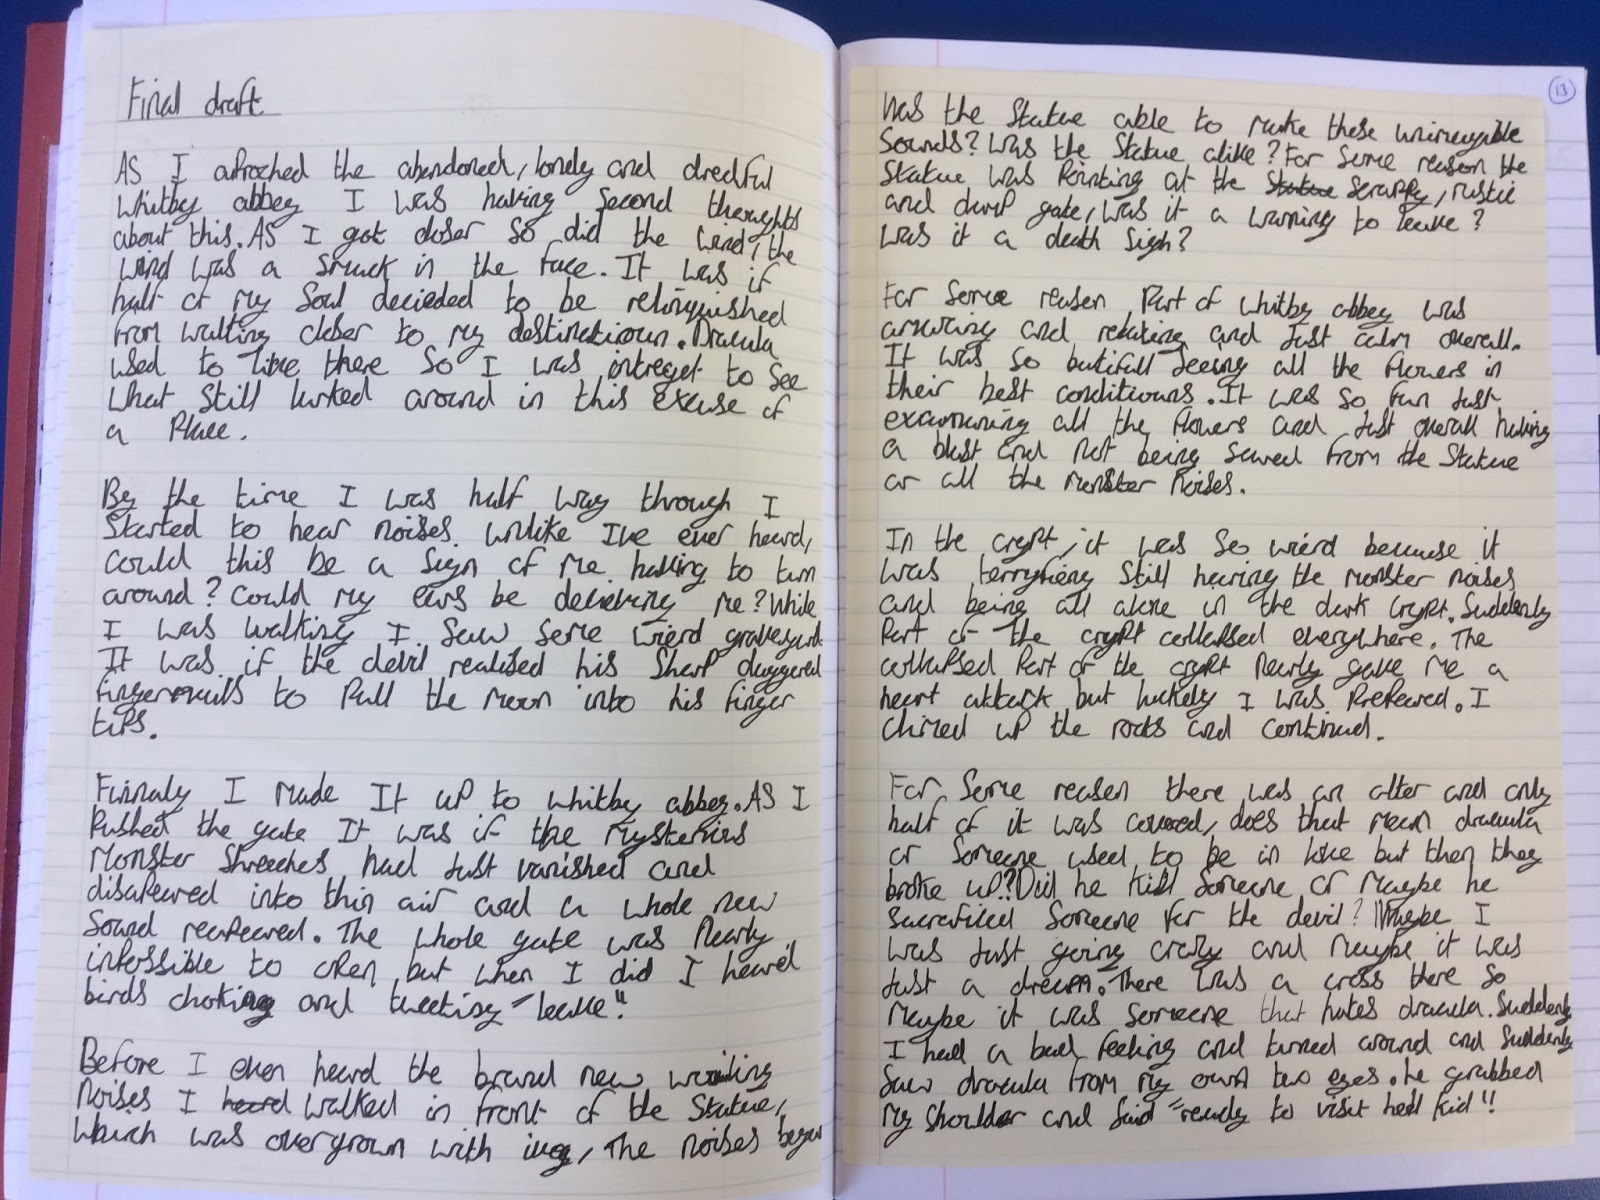 Final draft
As I aproched the abandoned, lonely and dredful
whitby abbey I was having second thoughts
about this. As I got closer so did the wind, the
wind was a smack in the face. It was if
half of my soul decieded to be relinquished
from walking closer to my destinatioun. Dracula
used to live there so I was intreget to see
what still lurked around in this excuse of
a place.
By the time I was half way through I
started to hear noises unlike I've ever heard,
could this be a sign of me having to turn
around? Could my ears be decieving me? While
I was walking I saw some wierd graveyard
It was if the devil realised his sharp daggered
fingernails to pull the moon into his finger
tips.
Finnaly I made It up to whitby abbey. As I
Pushed the gate It was if the mysterius
monster shreaches had Just vanished and
disapeared into thin air and a whole new
sound reapeared. The whole gate was nearly
impossible to open but when I did I heard
birds choking and tweeting "leave!"
Before I even heard the brand new wailing
noises I heard walked in front of the statue,
which was overgrown with ivy, The noises began
13
Was the statue able to make these unimaygible
sounds? Was the statue alive? For some reason the
statue was pointing at the statue scrappy, rustic
and damp gate, was it a warning to leave?
was it a death sigh?
For some reason part of whitby abbey was
amazing and relaxing and Just calm overall.
It was so butifull seeing all the flowers in
their best conditiouns. It was so fun Just
examining all the flowers and Just overall having
a blast and not being scared from the statue
or all the monster noises.
In the crypt, it was so wierd because it
was terryfieng still hearing the monster noises
and being all alone in the dark crypt. Suddenly
Part of the crypt collapsed everywhere. The
collapsed part of the crypt nearly gave me a
heart attack but luckely I was prepeared. I
climed up the rocks and continued.
For some reason there was an alter and only
half of it was covered, does that mean dracula
or someone used to be in love but then they
broke up? Did he kill someone or maybe he
sacrafised someone for the devil? Maybe I
was Just going crazy and maybe it was
Just a dream. There was a cross there so
maybe it was someone that hates dracula. Suddenly
I had a bad feeling and turned around and suddenly
saw dracula from my own two eyes. he grabbed
my shoulder and said "ready to visit hell kid"!